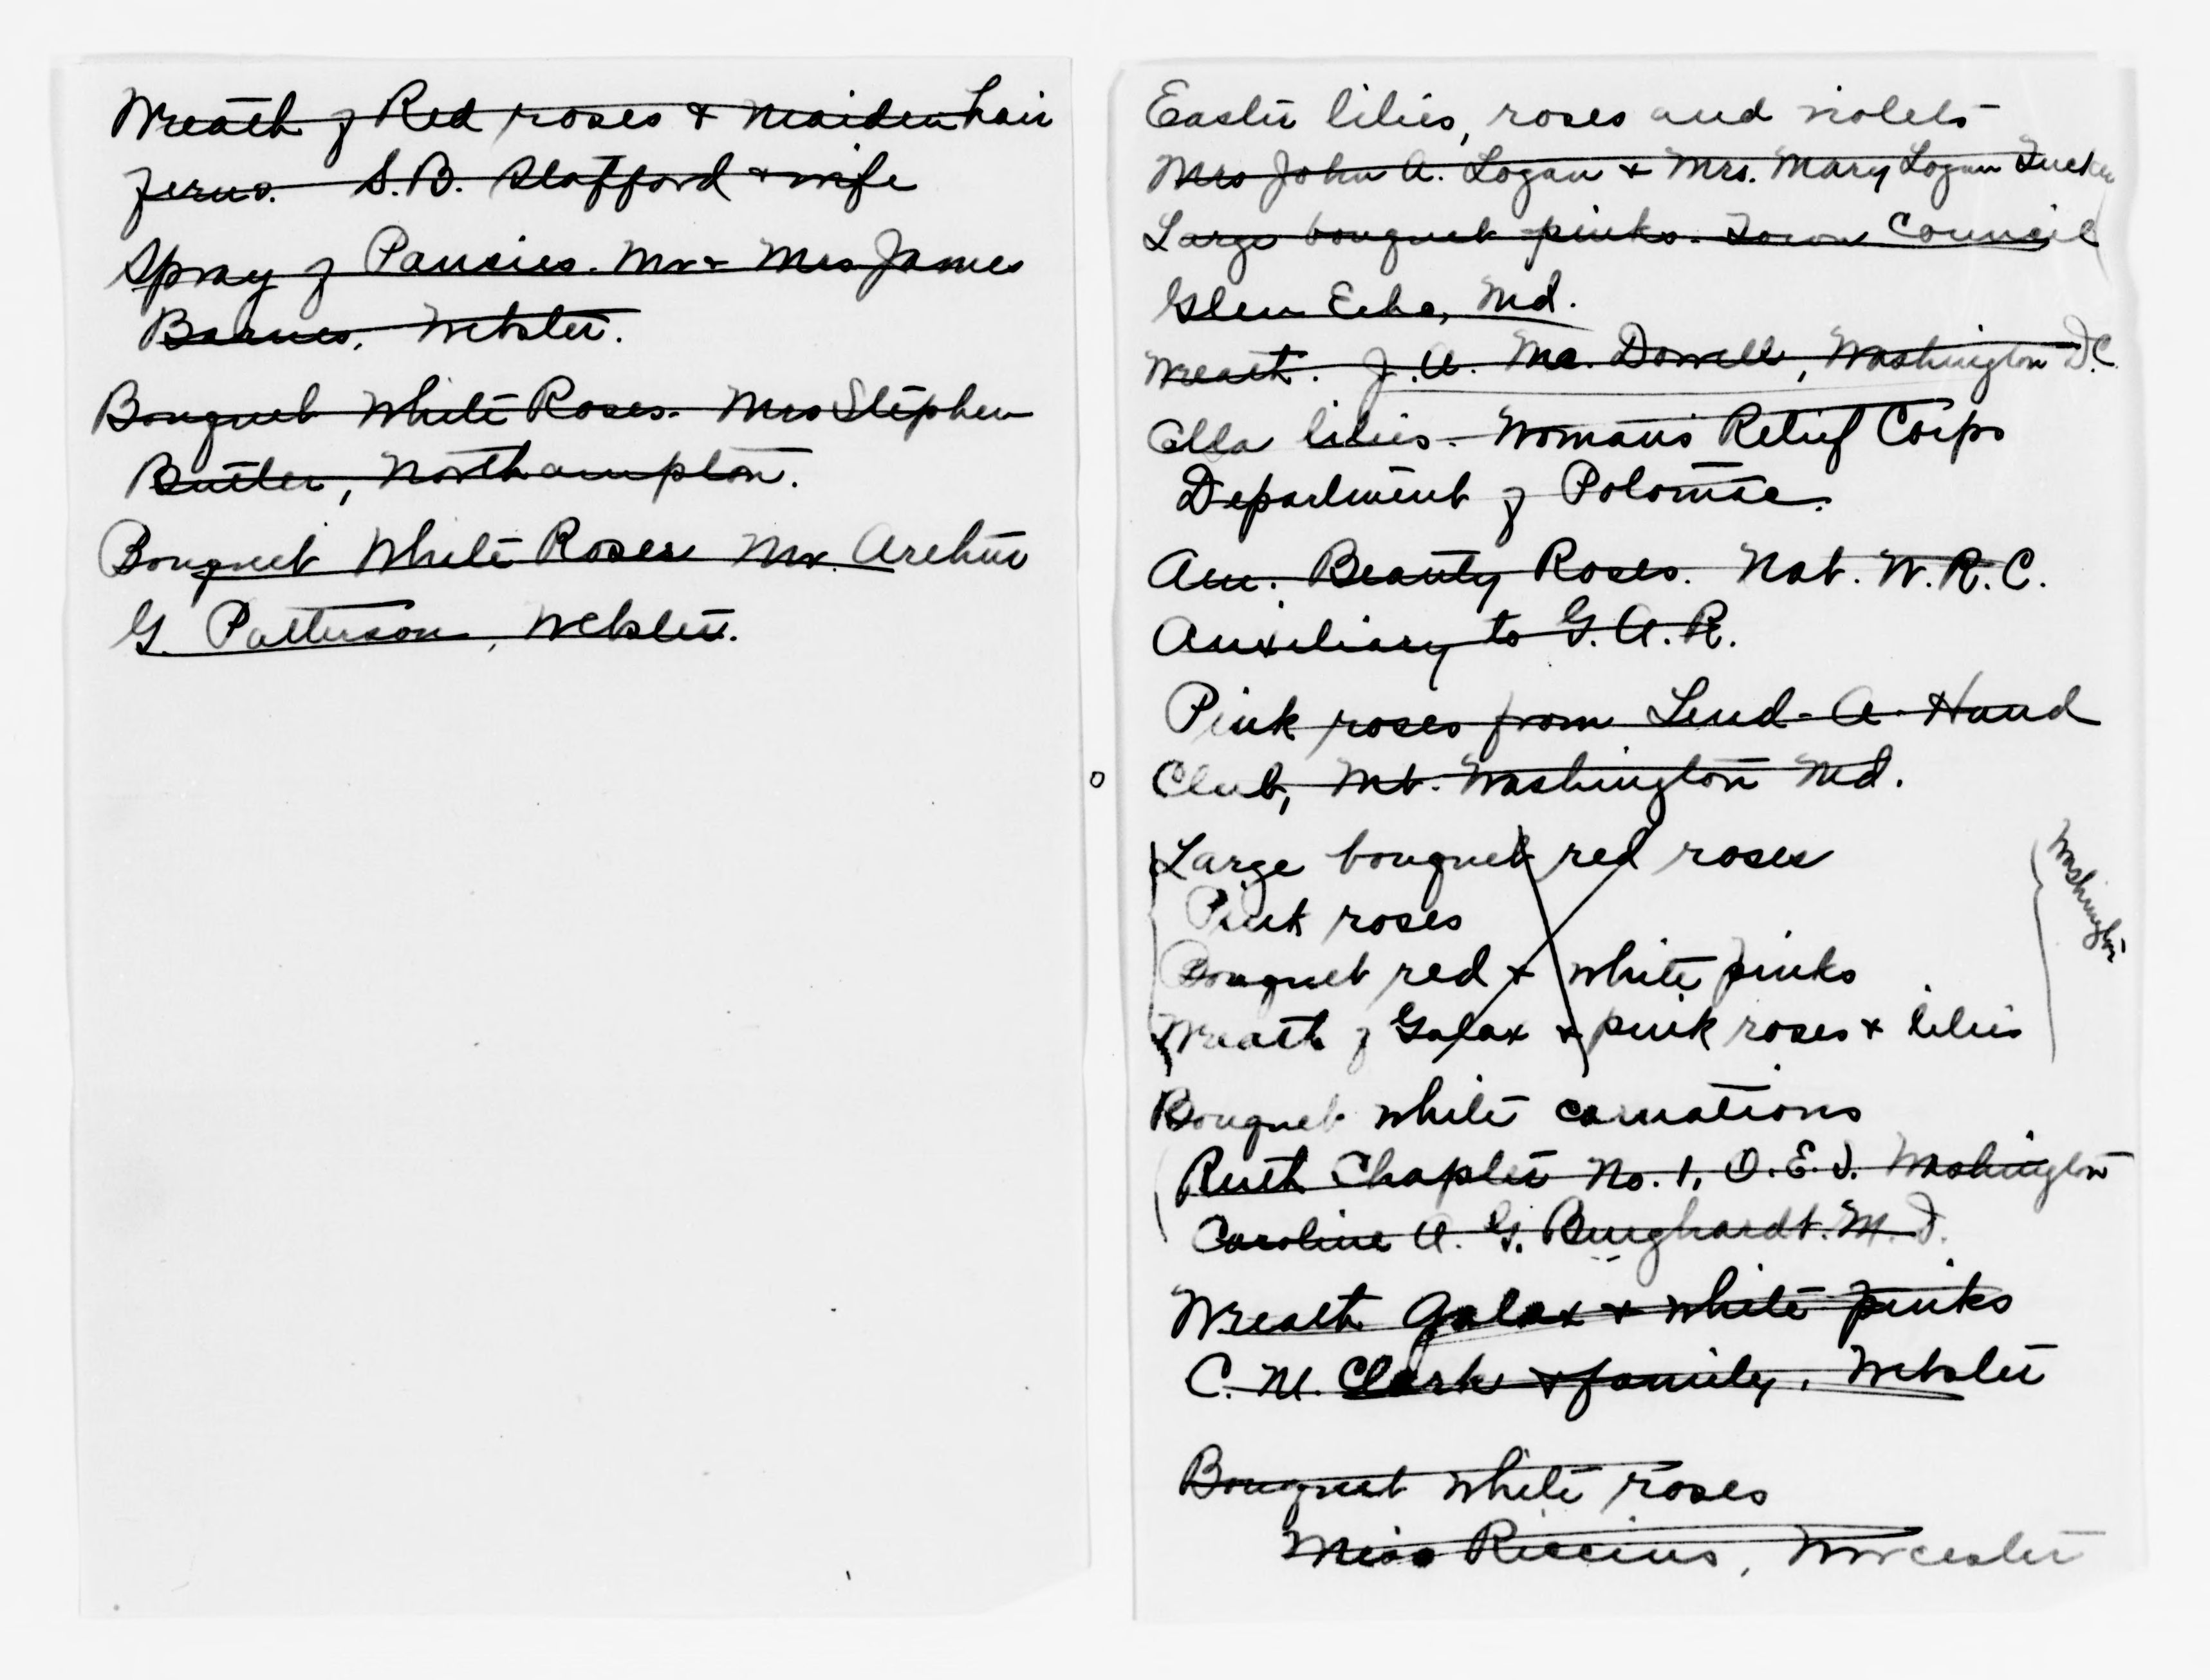 Wreath of Red roses & Maiden hair
ferns. S.B. Stafford & wife
Spray of Pansies. Mr & Mrs James
Barnes, Webster.
Bouquet White Roses. Mrs Stephen
Butler, Northampton.
Bouquet White Roses Mr. Arthur
G. Patterson, Webster.
Easter lilies, roses and violets
Mrs John A. Logan & Mrs. Mary Logan Tucker
Large bouquet pinks. Town Council
Glen Echo, Md.
Wreath. J. A. Mc. Dowell, Washington D.C.
Calla lilies. Woman's Relief Corps
Department of Potomac.
Am. Beauty Roses. Nat. W.R.C.
Auxiliary to G.A.R.
Pink roses from Lend-A-Hand
Club, Mt. Washington Md.
Large bouquet red roses
Pink roses
Bouquet red & white pinks
Wreath of Galax & pink roses & lilies
Washington
Bouquet white carnations
Ruth Chapter No. 1, O.E.S. Washington
Caroline A. G. Burghardt. M.D.
Wreath galax & white pinks
C. M. Clark & family, Webster
Bouquet white roses
Miss Riccius, Worcester